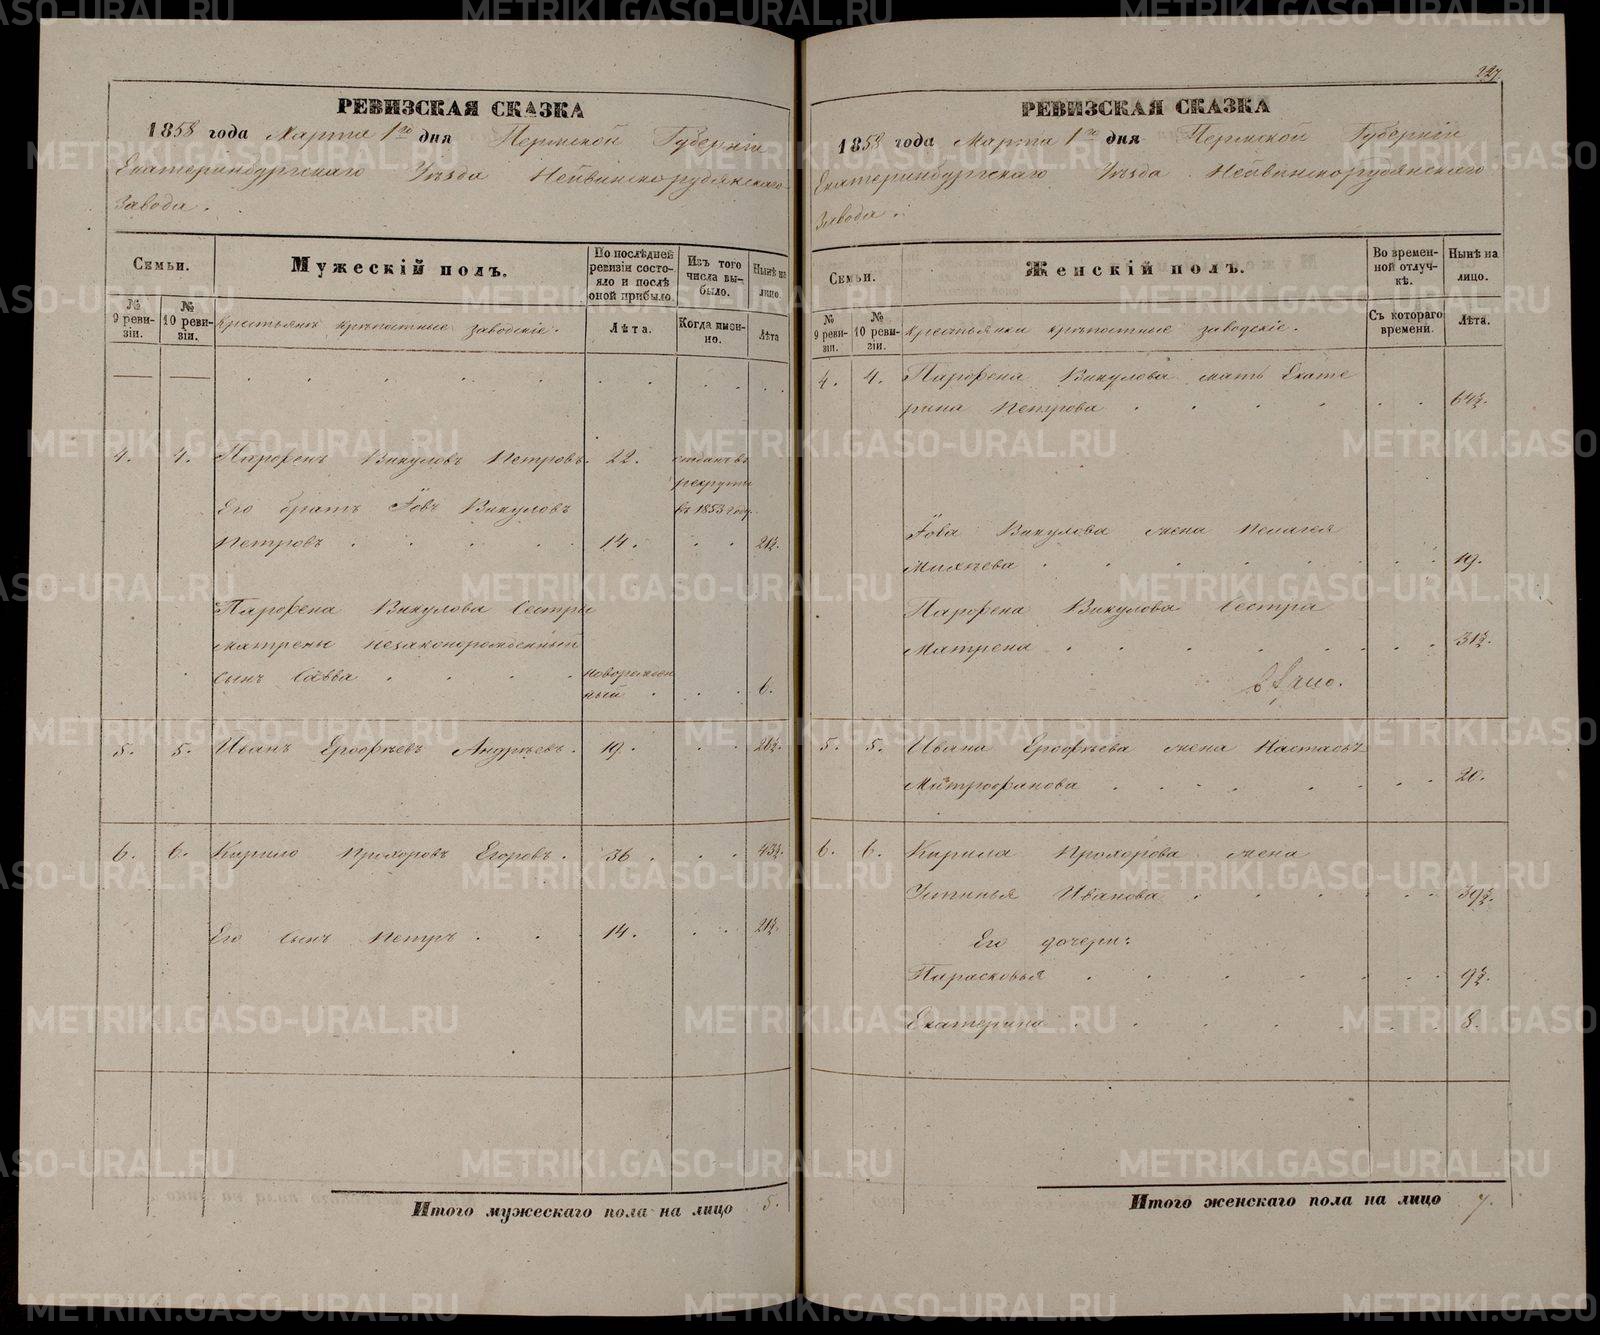 227.
РЕВИЗСКАЯ СКАЗКА
1858 года Марта 1го дня Пермской Губерніи
Екатеринбургскаго Уѣзда Нейвинскорудянскаго
Завода.
Семьи.
Мужескій полъ.
По послѣдней ревизіи состояло и послѣ оной прибыло.
Изъ того числа выбыло.
Нынѣ на лицо.
№ 9 ревизіи.
№ 10 ревизіи.
Крестьянъ крѣпостные заводскіе.
Лѣта.
Когда имянно.
Лѣта
4. 4. Парфенъ Викуловъ Петровъ. 22. отданъ въ
рекруты
Его братъ Іовъ Викуловъ въ 1853 году.
Петровъ 14. 21½.
Парфена Викулова Сестры
Матрены незаконорожденный
сынъ Савва новорожден
ный 6.
5. 5. Иванъ Ерофѣевъ Андрѣевъ. 19. 26½.
6. 6. Кирило Прохоровъ Егоровъ. 36. 43½.
Его сынъ Петръ 14. 21½.
Итого мужескаго пола на лицо 5.
РЕВИЗСКАЯ СКАЗКА
1858 года Марта 1го дня Пермской Губерніи
Екатеринбургскаго Уѣзда Нейвинскорудянскаго
Завода.
Семьи.
Женскій полъ.
Во временной отлучкѣ.
Нынѣ на лицо.
№ 9 ревизіи.
№ 10 ревизіи.
Крестьянки крѣпостные заводскіе.
Съ котораго времени.
Лѣта.
4. 4. Парфена Викулова мать Екате
рина Петрова 64½.
Іова Викулова жена Пелагея
Михѣева 19.
Парфена Викулова Сестра
Матрена 31½.
5. 5. Ивана Ерофѣева жена Настасья
Митрофанова 20.
6. 6. Кирила Прохорова жена
Устинья Иванова 39½.
Его дочери:
Парасковья 9½.
Екатерина 8.
Итого женскаго пола на лицо 7.
METRIKI.GASO-URAL.RU